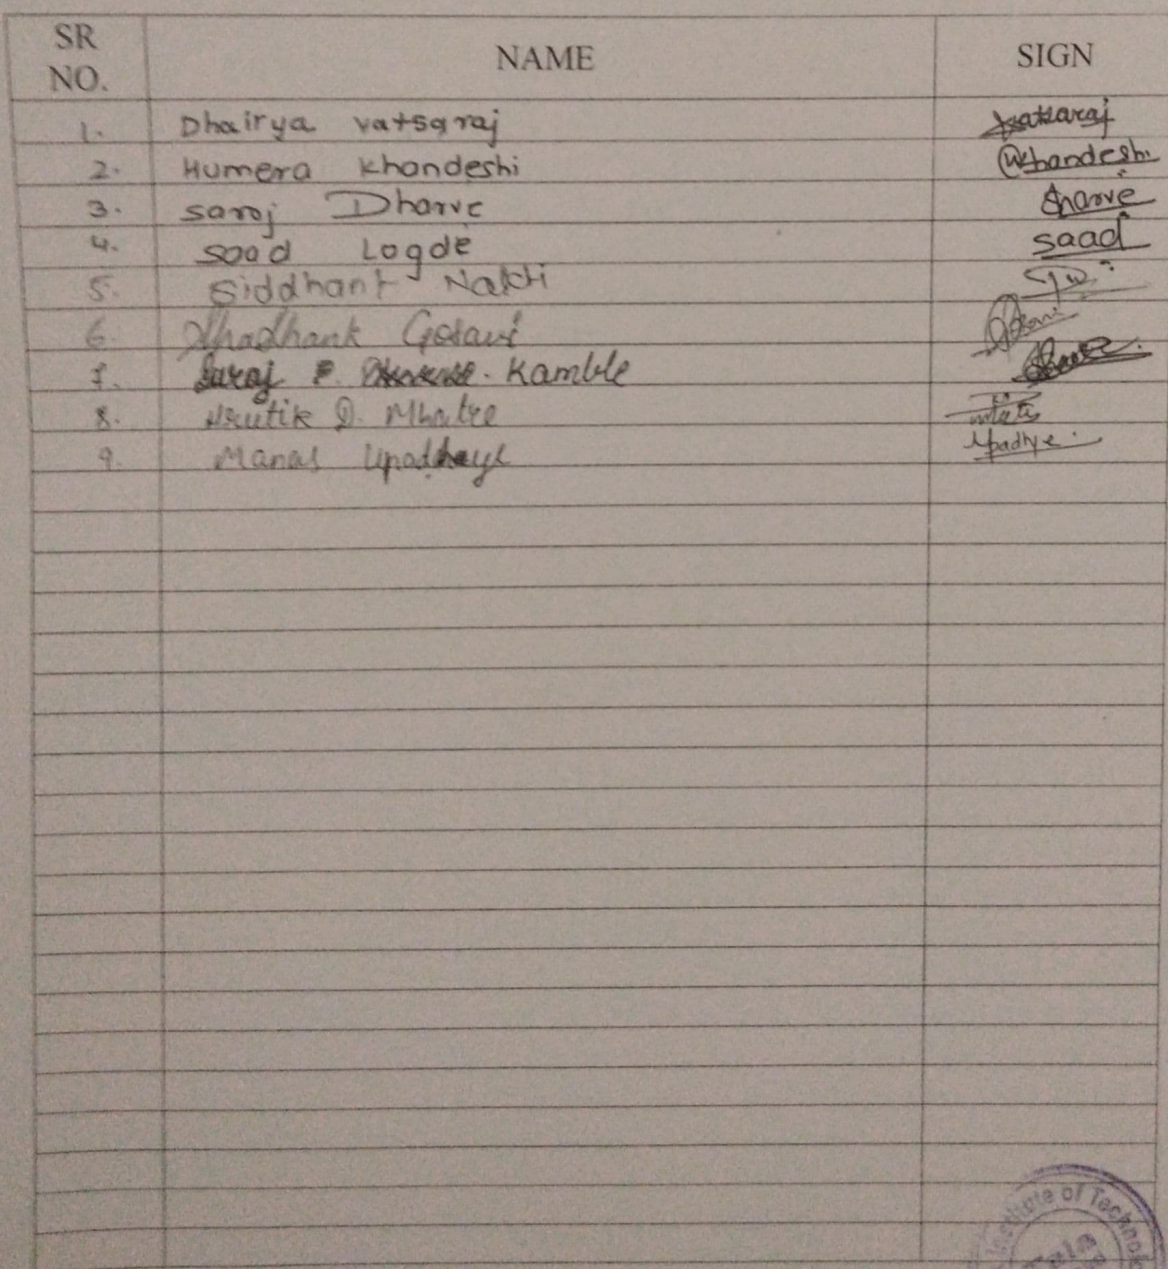 SR NO. NAME SIGN
1. Dhairya vatsaraj vatsaraj
2. Humera Khandeshi Khandeshi
3. saroj Dharve Dharve
4. saad Logde saad
5. Siddhant Nakti
6. Shashank Gosavi Gosavi
7. Suraj P. Kamble
8. Hrutik D. Mhatre
9. Manas Upadhaye Upadhye
Institute of Technolo